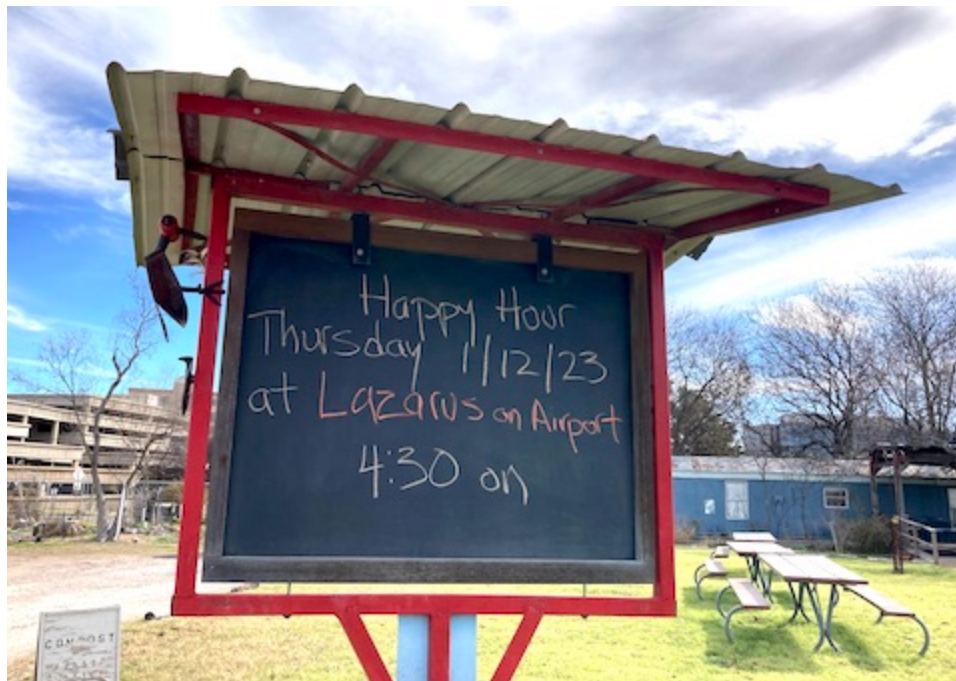 Happy Hour
Thursday 1/12/23
at Lazarus on Airport
4:30 on
COMPOST